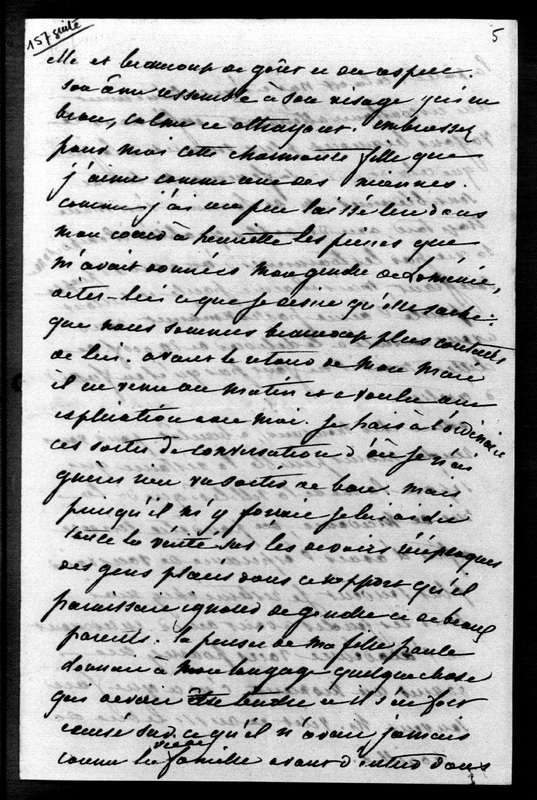 157 suite
5
elle et beaucoup de goût et de respect.
Son âme ressemble à son visage qui est
beau, calme et attrayant. Embrassez
pour moi cette charmante fille que
j'aime comme une des miennes.
Comme j'ai un peu laissé lire dans
mon coeur à henriette les peines que
m'avait données mon gendre de Loménie,
dites-lui ce que je désire qu'elle sache :
que nous sommes beaucoup plus contents
de lui. avant le retour de mon mari
il est venu un matin et a voulu une
explication avec moi. Je hais à l'ordinaire
ces sortes de conversation d'où je n'ai
guères rien vu sortir de bon. mais
puisqu'il m'y forçait je lui ai dit
toute la vérité sur les devoirs réciproques
des gens placés dans ce rapport qu'il
paraissait ignorer de gendre et de beaux
parents. la pensée de ma fille paule
donnait à mon langage quelque chose
qui devait être tendre et il s'est fort
excusé sur ce qu'il n'avait jamais
connu la vie de famille avant d'entrer dans